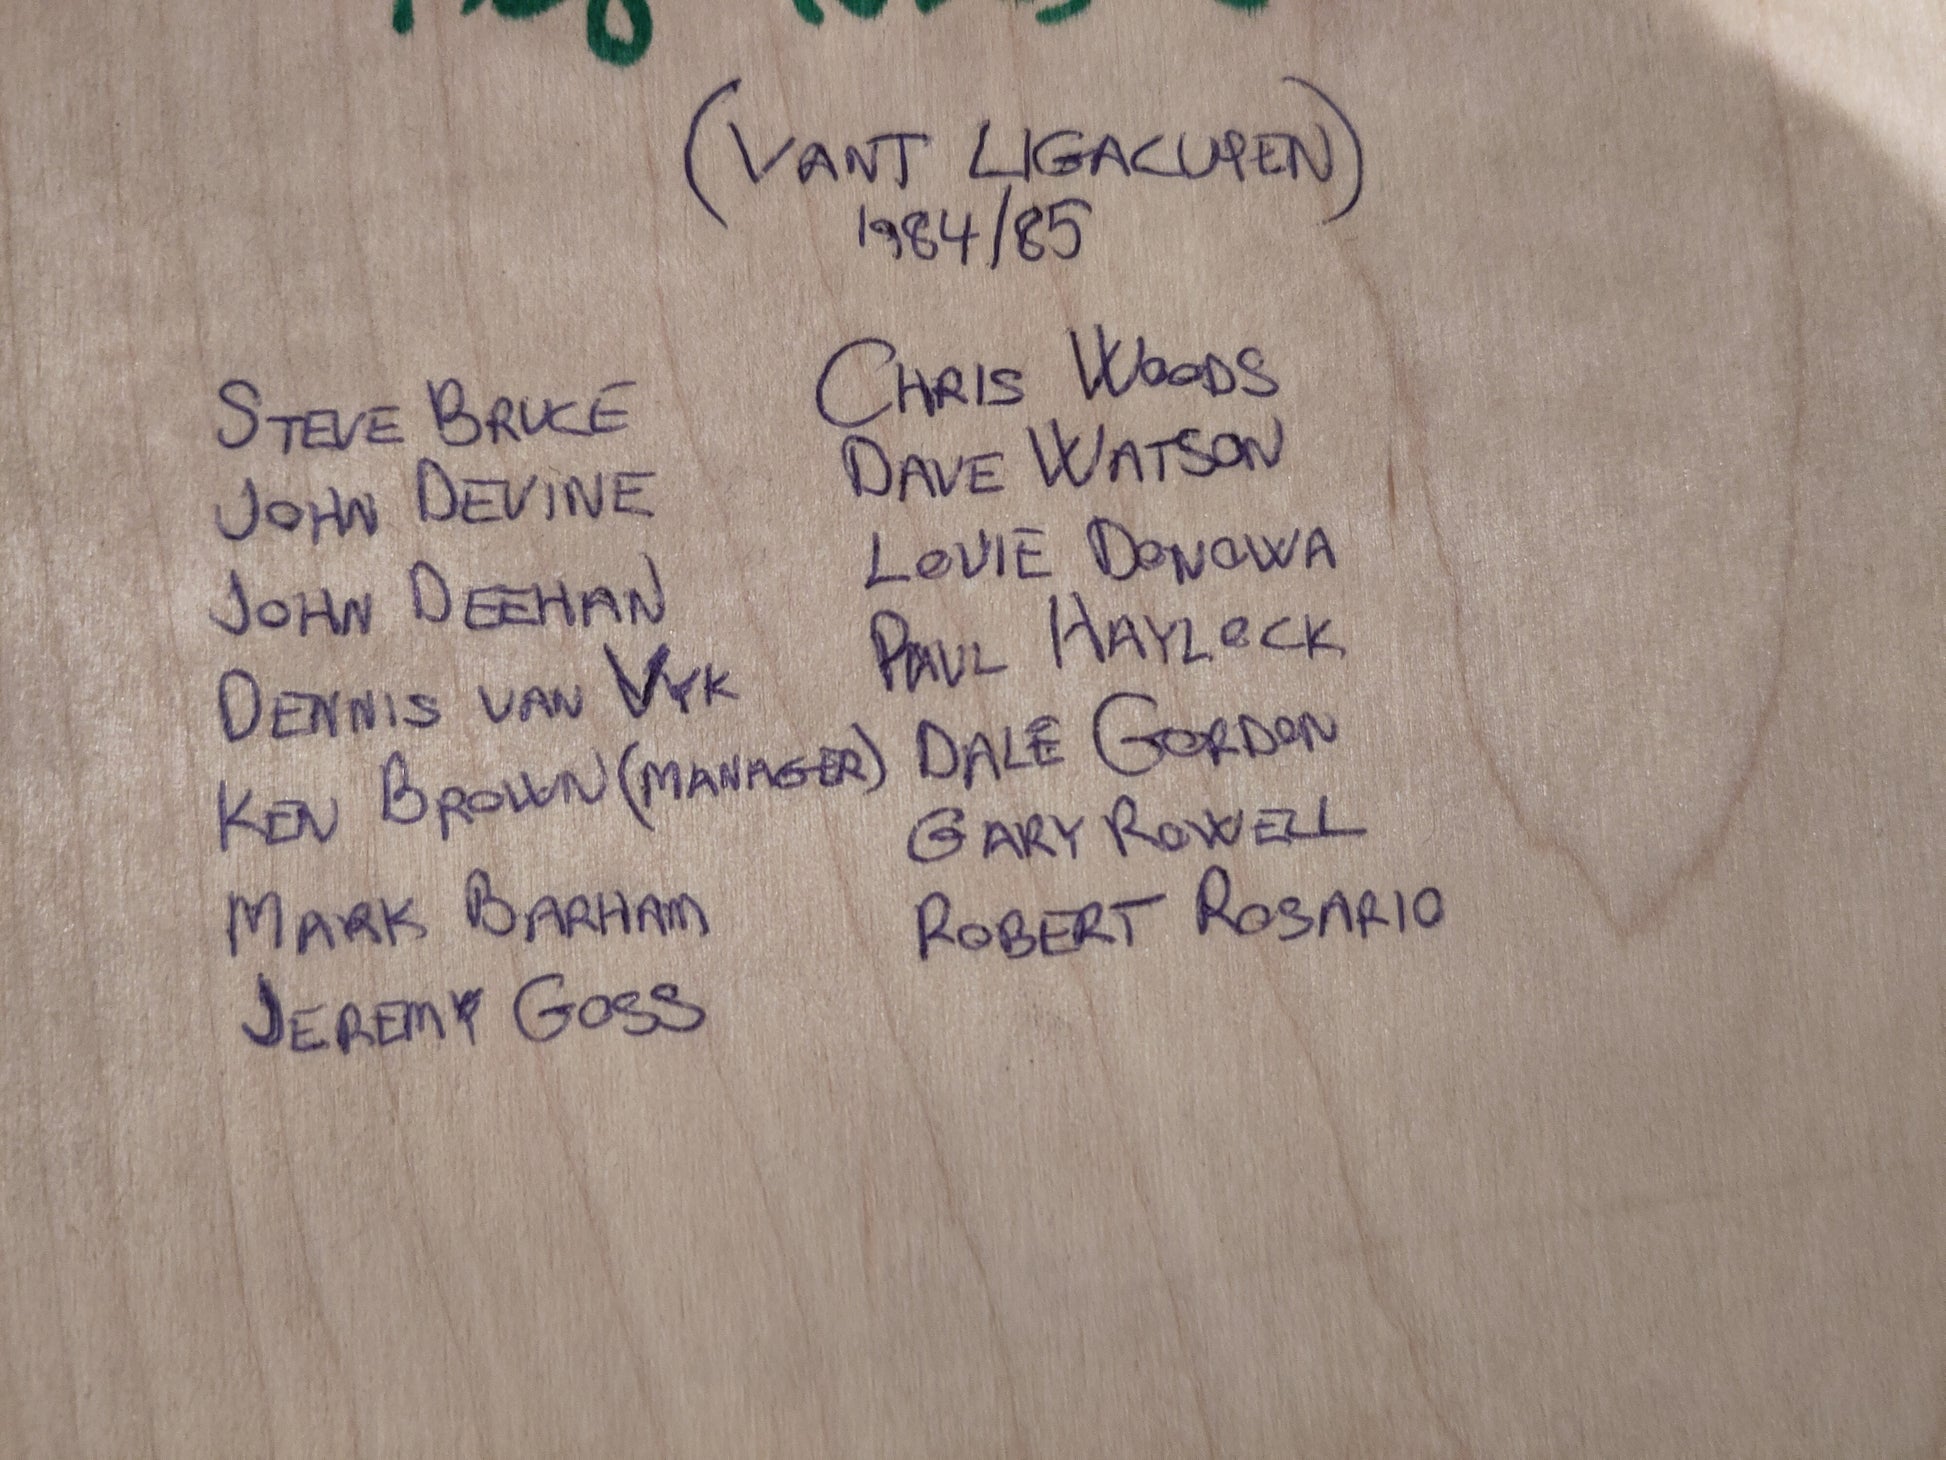 (VANT LIGACUPEN)
1984/85
STEVE BRUCE
JOHN DEVINE
JOHN DEEHAN
DENNIS VAN WYK
KEN BROWN (MANAGER)
MARK BARHAM
JEREMY GOSS
CHRIS WOODS
DAVE WATSON
LOUIE DONOWA
PAUL HAYLOCK
DALE GORDON
GARY ROWELL
ROBERT ROSARIO